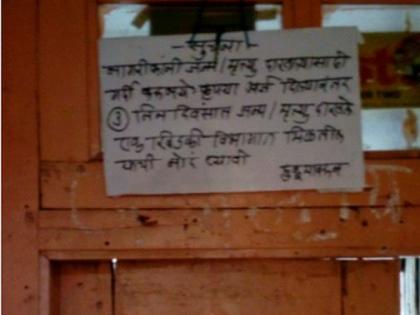 - सुचना -
नागरीकांनी जन्म / मृत्यु दाखल्यासाठी
गर्दी करू नये कृपया अर्ज दिल्यानंतर
③ तिन दिवसात जन्म / मृत्यु दाखले
एक खिडकी विभागात मिळतील
याची नोंद घ्यावी
हुकूमावरून